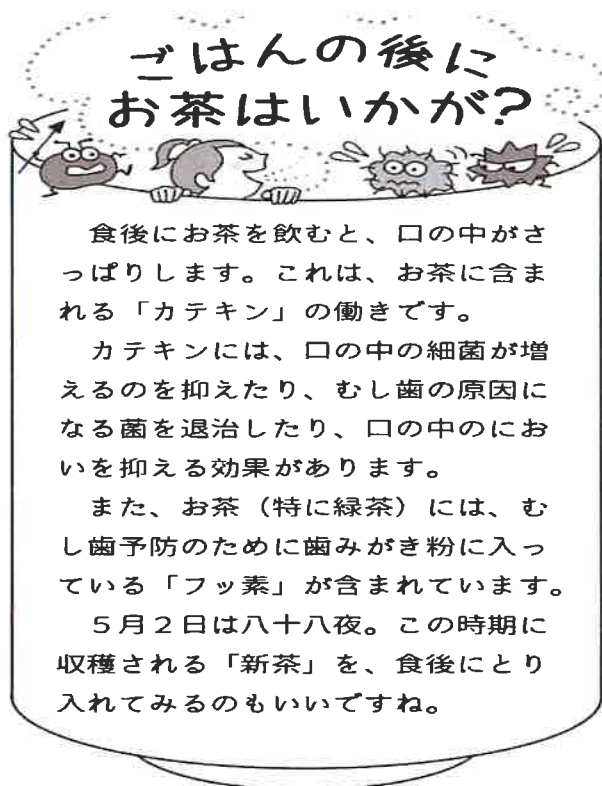 ごはんの後に
お茶はいかが?
食後にお茶を飲むと、口の中がさ
っぱりします。これは、お茶に含ま
れる「カテキン」の働きです。
カテキンには、口の中の細菌が増
えるのを抑えたり、むし歯の原因に
なる菌を退治したり、口の中のにお
いを抑える効果があります。
また、お茶(特に緑茶)には、む
し歯予防のために歯みがき粉に入っ
ている「フッ素」が含まれています。
5月2日は八十八夜。この時期に
収穫される「新茶」を、食後にとり
入れてみるのもいいですね。